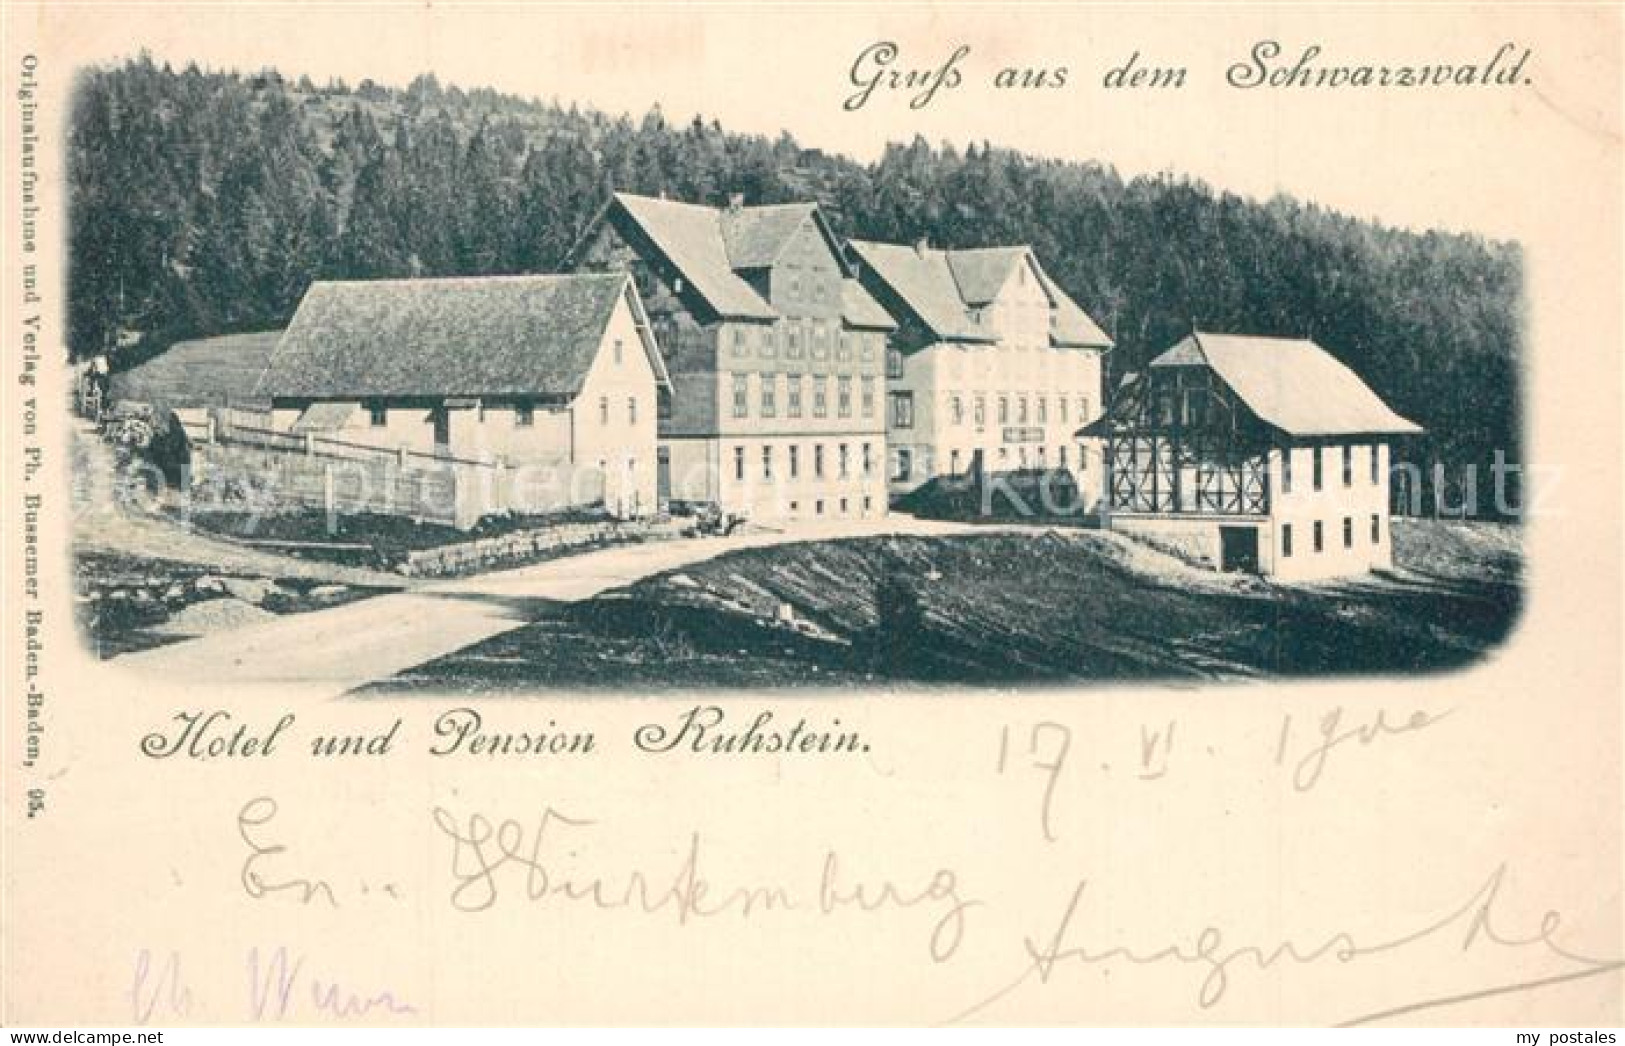 Gruß aus dem Schwarzwald.
Originalaufnahme und Verlag von Ph. Bussemer Baden.-Baden, 95.
Hotel und Pension Ruhstein.
17. VI. 1900
En.. Wurtemburg
Auguste
my postales